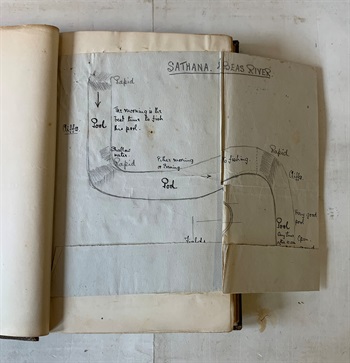 SATHANA, BEAS RIVER
Rapid
The morning is the
best time to fish
this pool.
Pool
Cliffs
Shallow
water
Rapid
Either morning
or evening
fishing.
Rapid
Cliffs
Pool
Very good
pool
Pool
Fields